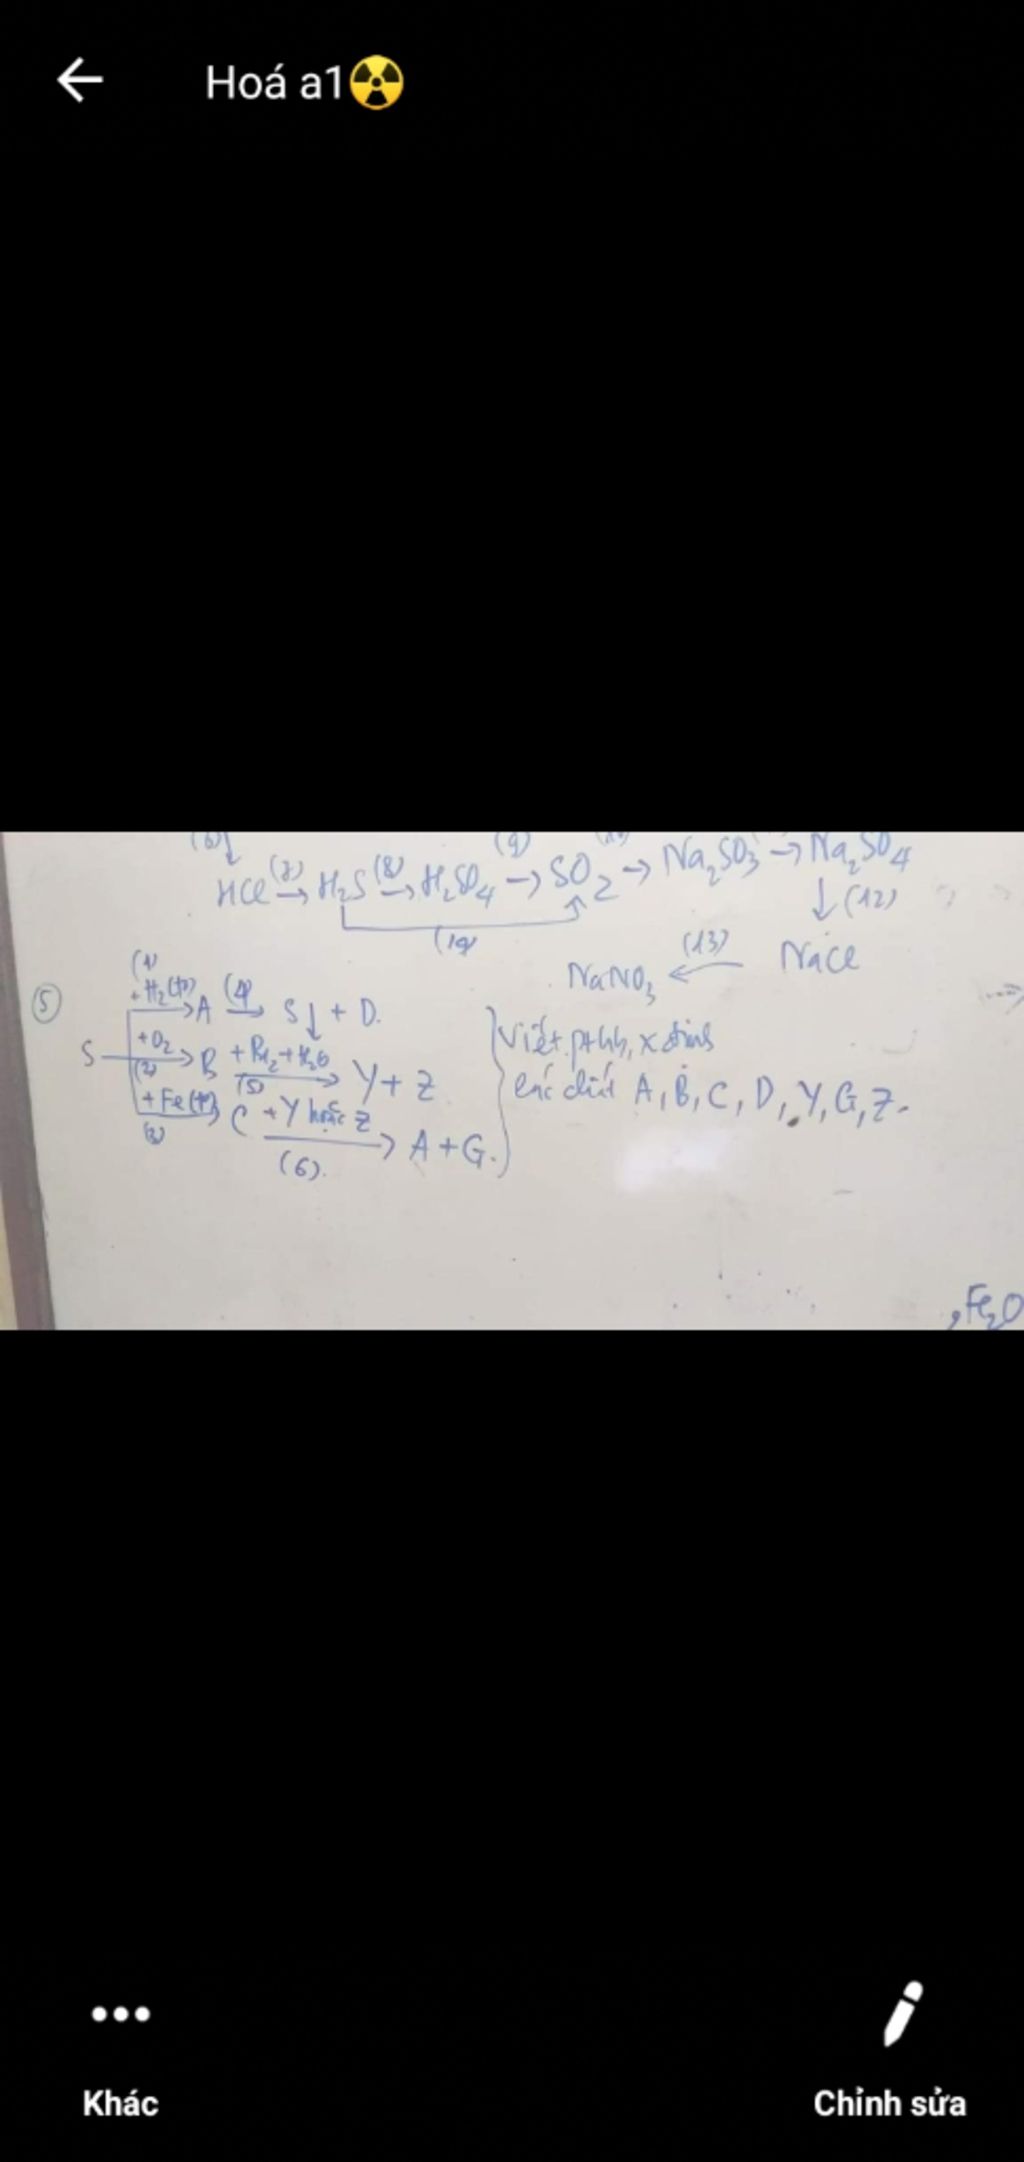 Hoá a1☢
HCl (7)→ H₂S (8)→ H₂SO₄ (9)→ SO₂ → Na₂SO₃ → Na₂SO₄
↓(12)
(13) NaCl
NaNO₃ ←
⑤ (1) +H₂(t°) → A (4)→ S↓ + D.
S +O₂ (2) → B +Br₂+H₂O (5) → Y + Z
+Fe(t°) (3) → C +Y hoặc Z (6). → A + G.
Viết pthh, x định
các chất A, B, C, D, Y, G, Z.
, Fe₂O
Khác
Chỉnh sửa